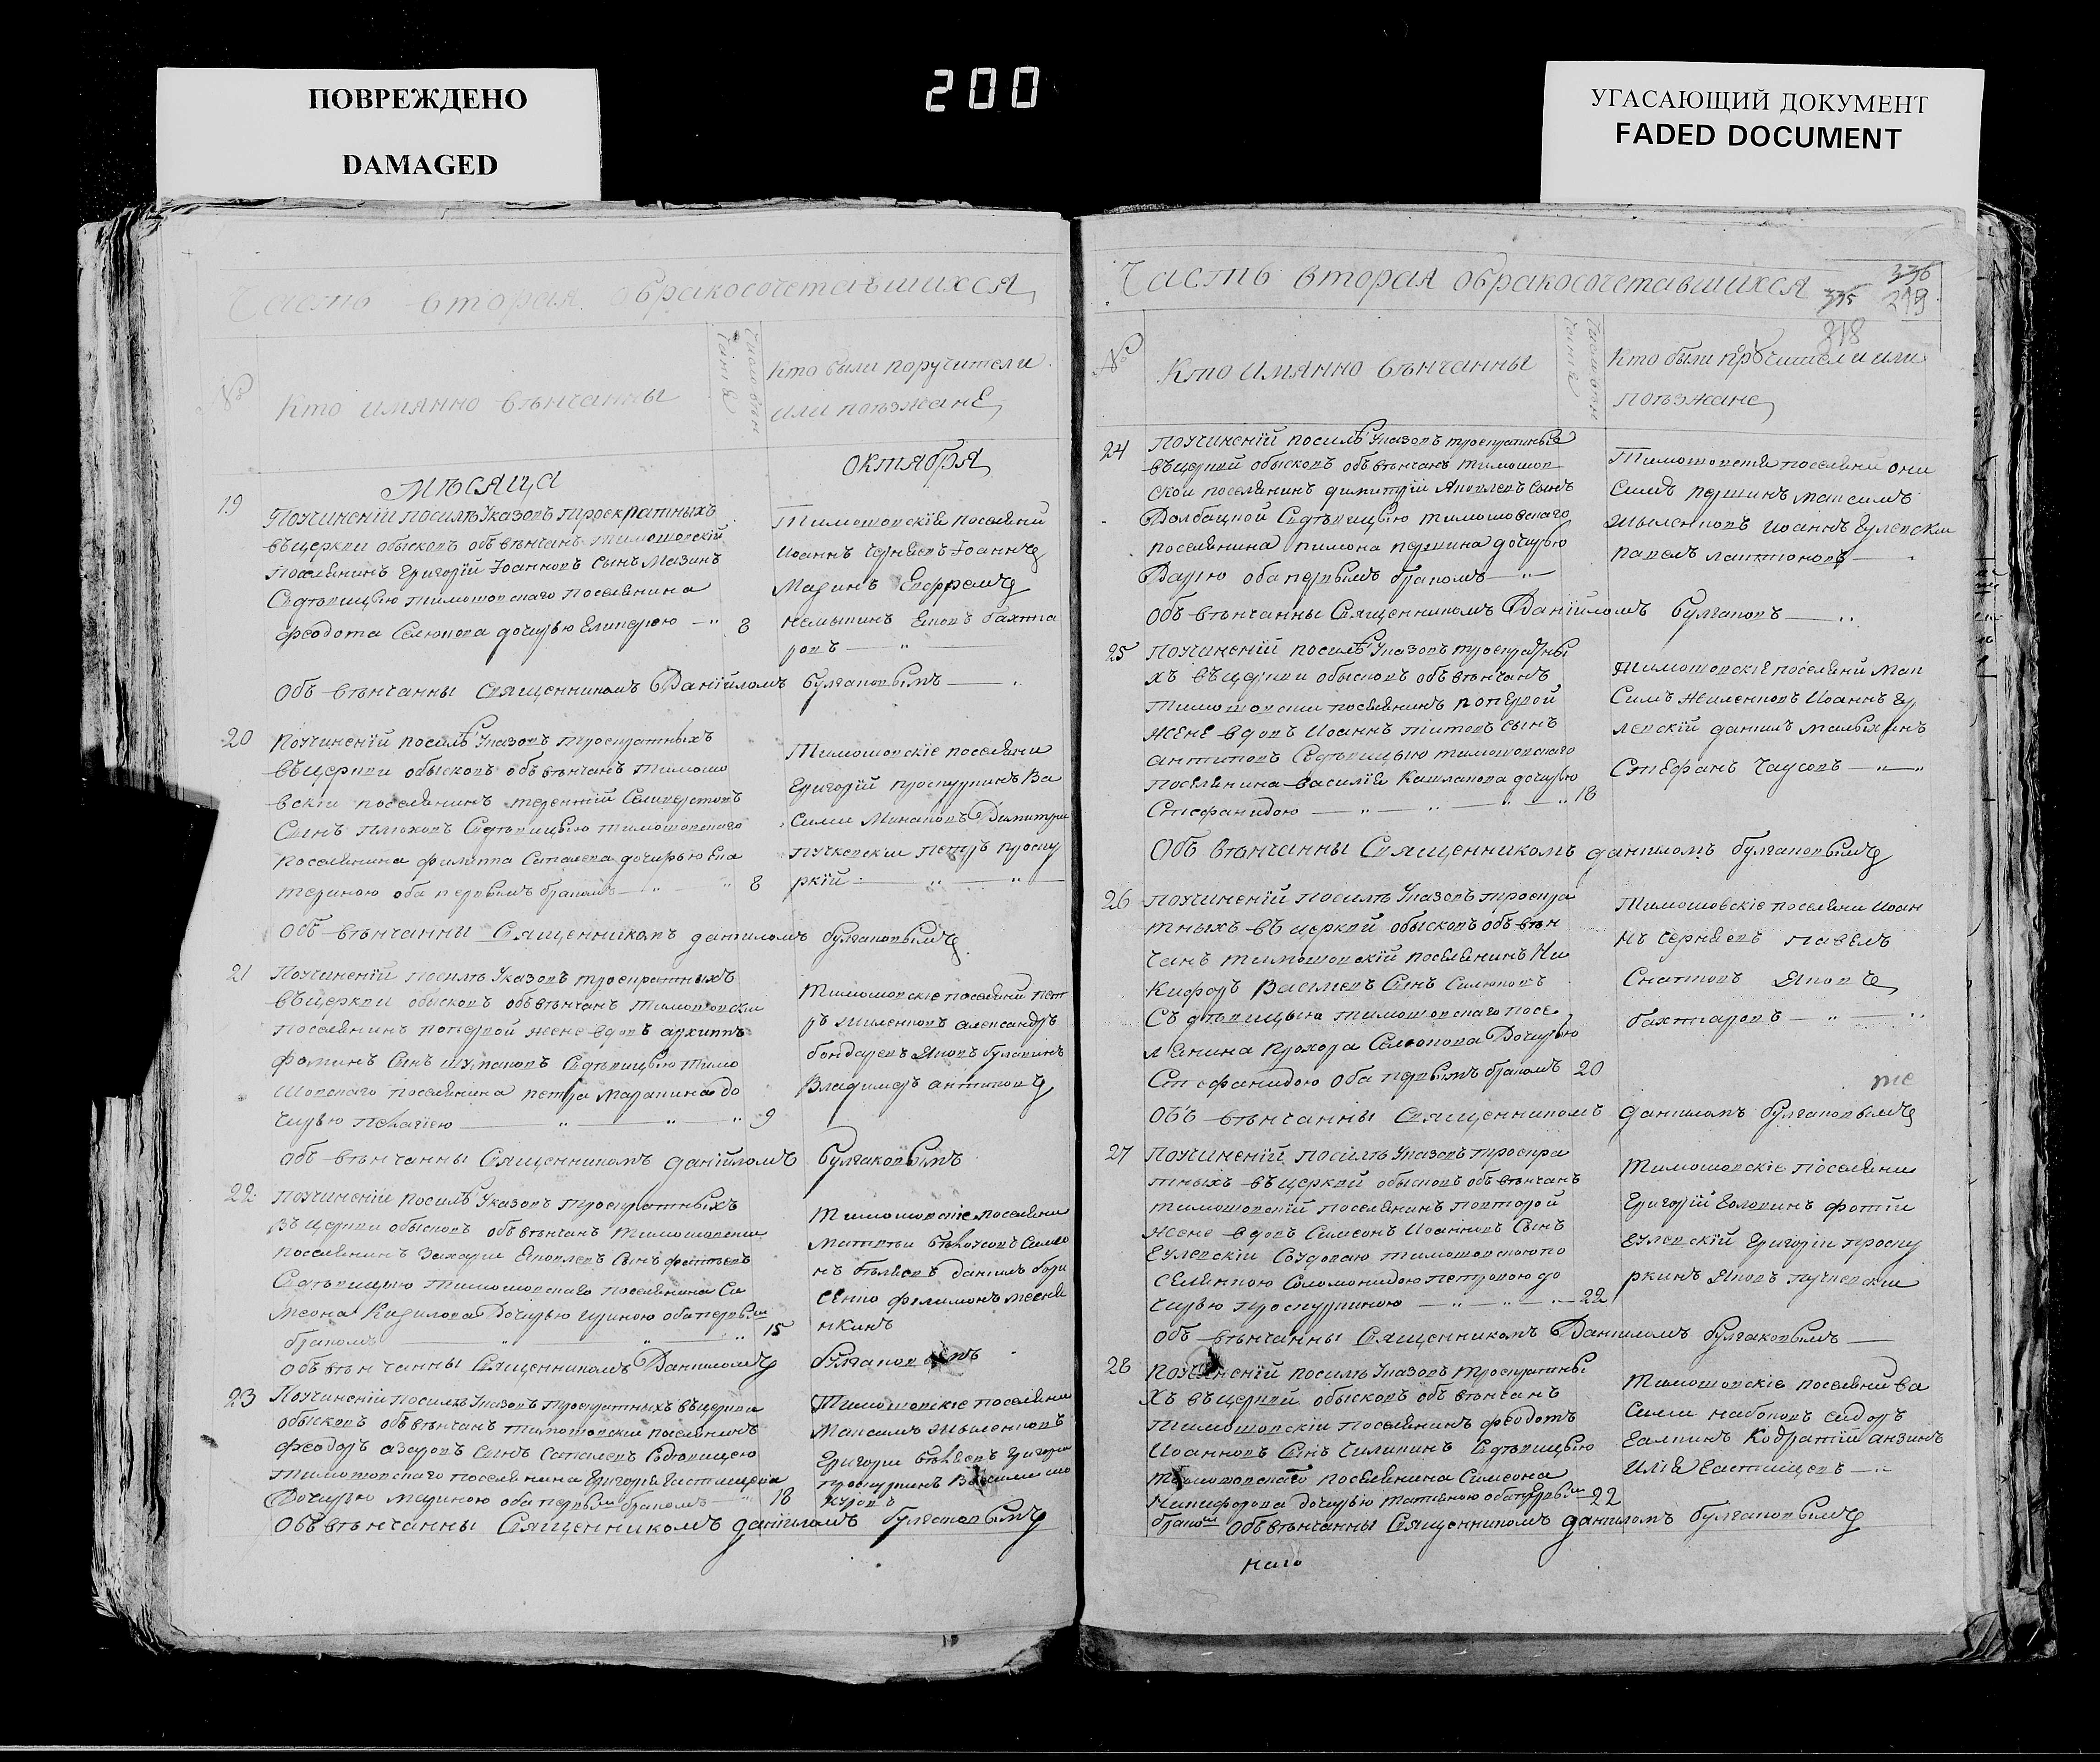 ПОВРЕЖДЕНО
DAMAGED
200
УГАСАЮЩИЙ ДОКУМЕНТ
FADED DOCUMENT
Часть вторая обракосочетавшихся
№
Кто имянно вѣнчанны
Кто были поручители
или поѣзжане
Мѣсяца
октября
19
Поучиненіи посилѣ Указовъ троекратныхъ
въцеркви обысковъ обвѣнчанъ тимошовскій
поселянинъ Григорій Іоанновъ сынъ Мазинъ
Съдѣвицею тимошовскаго поселянина
феодота Селюкова дочерью Гликерією 8
Тимошовскія поселяни
Иоаннъ Черняевъ Іоаннъ
Мазинъ Ефремъ
Яковъ Бахта
ровъ
Объ вѣнчанны Священникомъ Даніиломъ Булгаковымъ
20
Поучиненіи посилѣ Указовъ троекратныхъ
въцеркви обысковъ обвѣнчанъ тимошо
вскіи поселянинъ терентій
Сынъ Съдѣвицею тимошовскаго
поселянина филиппа Сапалева дочерью Ека
териною оба первымъ бракомъ 8
Тимошовскіе поселяни
Григорій проскуринъ Ва
силии Минаковъ Димитрии
пучковскіи петръ проску
ркій
Объ вѣнчанни Священникомъ даниломъ булгаковымъ
21
Поучиненіи посилѣ Указовъ троекратныхъ
въцеркви обысковъ обвѣнчанъ тимошовскіи
поселянинъ попервой жене вдовъ архиппъ
фоминъ Сынъ шумаковъ Съдѣвицею тимо
шовскаго поселянина петра Маракина до
черью пелагіею 9
Тимошовскіе поселяни пет
ръ жиленковъ александръ
бондаревъ Яковъ
Владимеръ антиповъ
Объ вѣнчанны Священникомъ даніиломъ Булгаковымъ
22
Поучиненіи посилѣ Указовъ троекратныхъ
въ церкви обысковъ обвѣнчанъ тимошовски
поселянинъ Захарии Яковлевъ Сынъ
Съдѣвицею тимошовскаго поселянина Си
меона Кирилова Дочерью ириною оба первым
бракомъ 15
Тимошовскіе поселяни
Матвѣи бѣлоусовъ Симео
нъ бѣляевъ данилъ бори
сенко филимонъ
нкинъ
Объ вѣнчанны Священникомъ Даниломъ булгаковымъ
23
Поучиненіи посилѣ Указовъ троекратныхъ въцеркви
обысковъ обвѣнчанъ тимошовскіи поселянинъ
феодоръ азаровъ сынъ Сапалевъ Съдѣвицею
тимошовскаго поселянина Григорія Частищева
Дочерью Мариною оба первым бракомъ 18
Тимошовскіе поселяни
Максимъ жиленковъ
Григории бѣляевъ Григори
проскуринъ Василии
Объвѣнчанны Священникомъ даніиломъ булгаковымъ
Часть вторая обракосочетавшихся
336
335 219
318
№
Кто имянно вѣнчанны
Кто были поручители или
поѣзжане
24
поучиненіи посилѣ Указовъ троекратныхъ
въцеркви обысковъ обвѣнчанъ тимошов
ской поселянинъ димитріи Яковлевъ Сынъ
Долбацкой Съдѣвицею тимошовскаго
поселянина пимона першина дочерью
Дарією оба первымъ бракомъ
Тимошовскія поселяни они
симъ першинъ Максимъ
жыленковъ Иоаннъ Гулевски
павелъ лактионовъ
Объ вѣнчанны Священникомъ Даніиломъ булгаковъ
25
Поучиненіи посилѣ Указовъ троекратны
хъ въцеркви обысковъ обвѣнчанъ
тимошовскии поселянинъ попервой
жене вдовъ Иоаннъ титовъ сынъ
антиповъ Съдѣвицею тимошовскаго
поселянина василія Кашлакова дочерью
Стефанидою 18
Тимошовскіе поселяни Мак
симъ жиленковъ Иоаннъ Гу
левскій данилъ
Стефанъ Чаусовъ
Объ вѣнчанны Священникомъ даниломъ булгаковымъ
26
поучиненіи посилѣ Указовъ троекра
тныхъ въ церкви обысковъ обвѣн
чанъ тимошовскій поселянинъ Ни
кифоръ Василевъ Сынъ Силюковъ
Съ дѣвицею тимошовскаго посе
лянина прохора Селюкова Дочерью
Стефанидою Оба первымъ бракомъ 20
Тимошовскіе поселяни Иоан
нъ черняевъ павелъ
Яковъ
бахтаровъ
Объ вѣнчанны Священникомъ даниломъ булгаковымъ
27
Поучиненіи посилѣ Указовъ троекра
тныхъ въцеркви обысковъ обвѣнчанъ
тимошовскіи поселянинъ повторой
жене вдовъ Симеонъ Иоанновъ Сынъ
Гулевскіи Совдовою тимошовскою по
селянкою Соломонидою петровою до
черью проскуркиною 22
Тимошовскіе поселяни
Григорій Головинъ фотіи
Гулевскій Григоріи проску
ркинъ Яковъ пучковскіи
Объ вѣнчанны Священникомъ Даниломъ булгаковымъ
28
поучиненіи посилѣ Указовъ троекратны
хъ въцеркви обысковъ обвѣнчанъ
Тимошовскіи поселянинъ феодотъ
Иоанновъ Сынъ Чиликинъ Съдѣвицею
тимошовскаго поселянина Симеона
Никифорова дочерью татіяною оба первым 22
браком
Тимошовскіе поселяни ва
силии набоковъ сидоръ
Галкинъ Кодратій анзинъ
Илія Частищевъ
Объвѣнчанны Священникомъ даниломъ булгаковымъ
наго